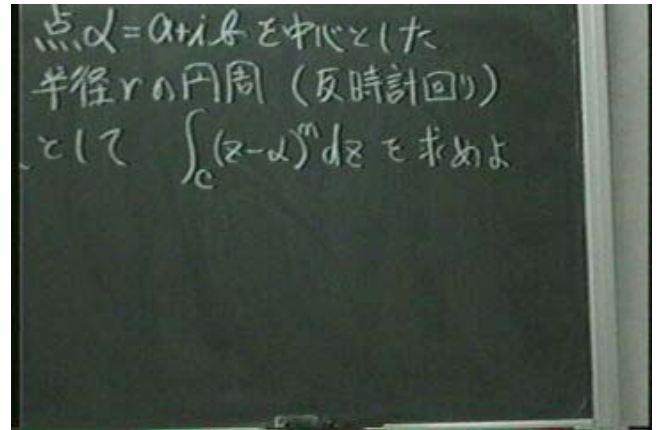 点α=a+ibを中心とした
半径rの円周（反時計回り）
として ∫_C (z-α)^m dz を求めよ